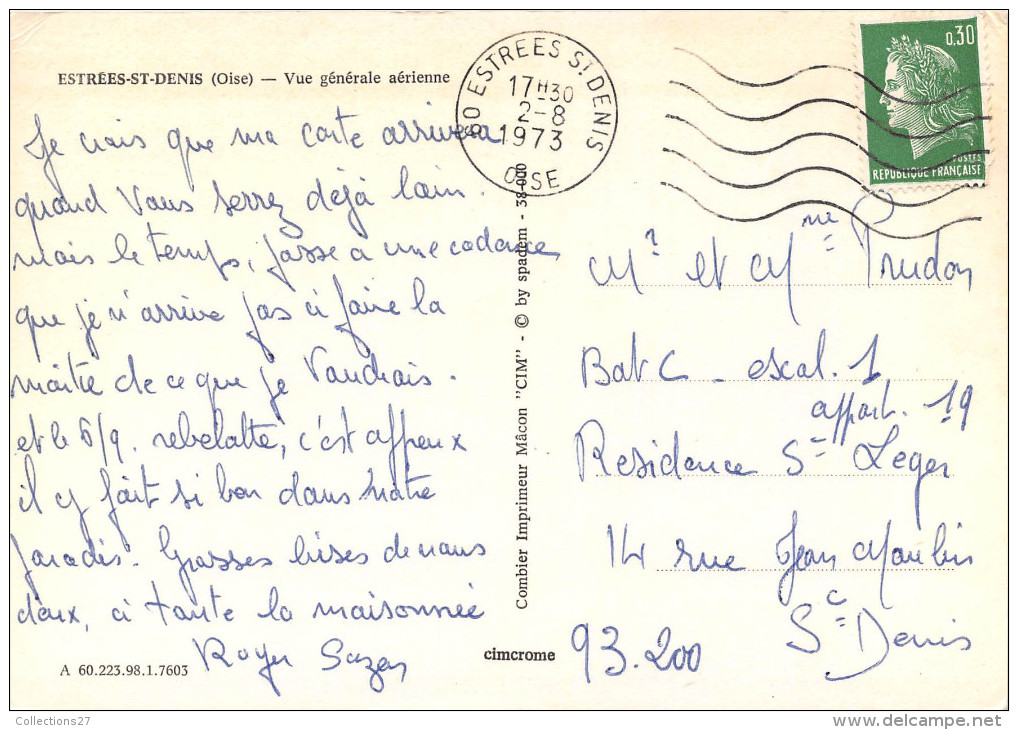 ESTRÉES-ST-DENIS (Oise) — Vue générale aérienne
Je crois que ma carte arrivera
quand Vous serrez déjà loin.
mais le temps, passe a une cadence
que je n'arrive pas à faire la
moitié de ce que je Voudrais.
et le 6/9. rebelotte, c'est affreux
il y fait si bon dans notre
paradis. Grosses bises de nous
deux, à toute la maisonnée
Roger
A 60.223.98.1.7603
60 ESTREES ST DENIS
17H30
2-8
1973
OISE
0,30
POSTES
REPUBLIQUE FRANÇAISE
Combier Imprimeur Mâcon "CIM" - © by spadem - 38-000
cimcrome
Mr et Mme Prudon
Bat C - escal. 1
appart. 19
Residence St Leger
14 rue Jean Moulin
93.200 St Denis
Collections27
www.delcampe.net